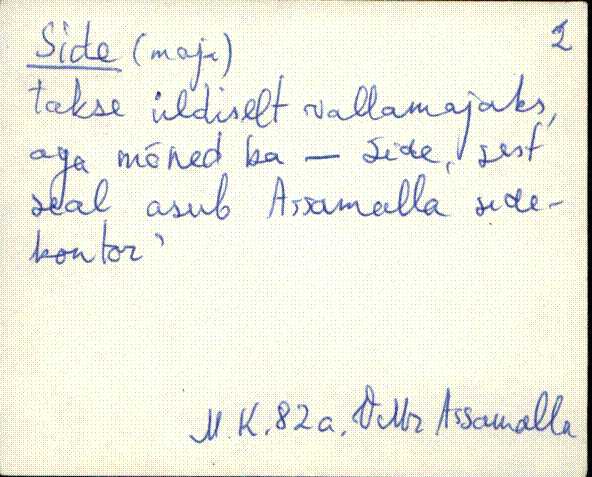 Side (maja) 2
takse üldiselt vallamajaks,
aga mõned ka — Side, sest
seal asub Assamalla side-
kontor'
M. K. 82a. VMr Assamalla